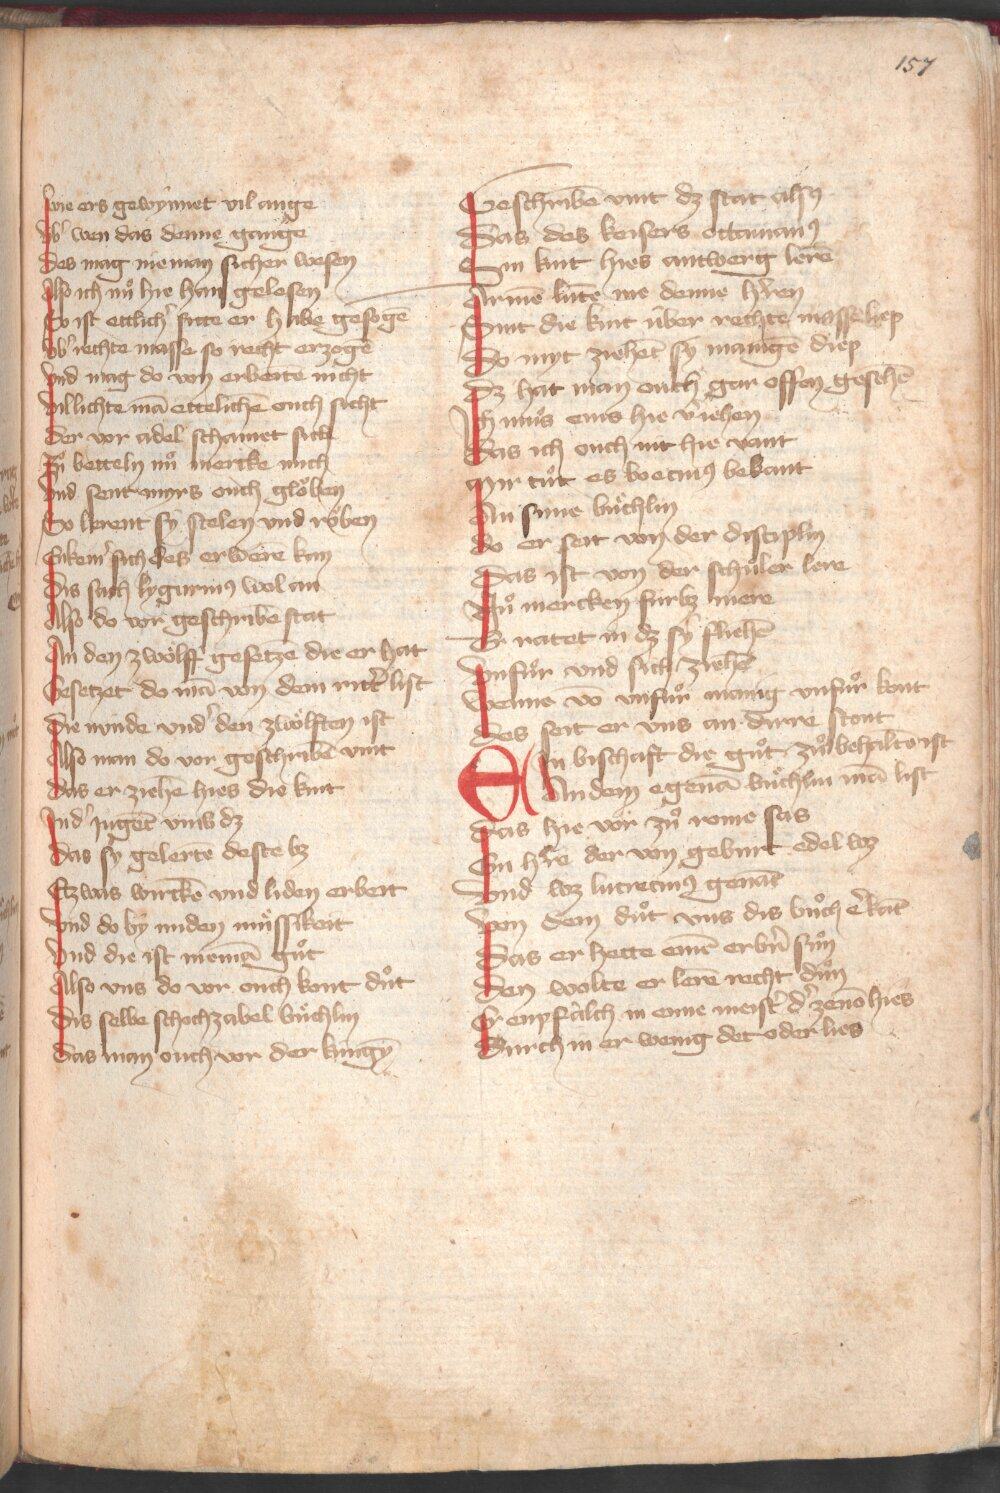 157
Wie ers gewÿnnet vil ange
Vb' wen das denne gange
Des mag nieman sicher wesen
Also ich nuͦ hie han gelesen
So ist ettlich' sitte er habe gesogē
Vb' rechte masse so recht erzogē
Vnd mag do von erbeite nicht
Villichte mā ettelichē ouch sicht
Der vor adel schamet sich
Zuͦ betteln nuͦ mercke mich
Vnd sent myrs ouch gloͮben
So lerent sÿ stelen vnd roͮben
sich des erwerē kan
Dis sach lygurnuꝰ wol an
Also do vor geschribē stat
An den zwoͤlff gesetze die er hat
Gesetzet do mā von dem ritt' list
Die nunde vnd' den zwoͤlften ist
Also man do vor geschribē vint
Das er ziehē hies die kint
Ind' jugēt vmb dz
Das sÿ gelertē deste bz
Etzwas wirckē vnd liden erbeit
Vnd do bÿ miden muͤssikeit
Vnd die ist niemā guͦt
Also vns do vor ouch kont duͦt
Dis selbe schochzabel buͤchlin
Das man ouch vor der kungÿ
Geschribē vint dz stat alsꝰ
Das des keisers ottauianꝰ
Sin kint hies antwerg lerē
Armē lutē me denne h'ren
Sint die kint über rechte masse liep
Do myt ziehēt sÿ manigē diep
Dz hat man ouch gar offen geschē
Ich muͦs eins hie v'iehen
Das ich ouch nit hie vant
Mir tuͦt es boecinꝰ bekant
An sinne buͤchlin
Do er seit von der disciplin
Das ist von der schuͦler lere
Nuͦ mercken fürbz mere
Er ratet in dz sÿ fliehē
Vnfuͦr vnd sich ziehē
Wenne vō vnfuͦr manig vnfuͦr kont
Des seit er vns an dirre stont
Ein bischaft die guͦt zuͦ behaltē ist
An dem egenā buͤchlin mā list
Das hie vor zuͦ rome sas
Ein h're der von geburt edel wz
Vnd wz lucrecius genāt
Von dem duͦt vns dis buͦch e'kāt
Das er hette eine erb'n suͦn
Den wolte er lerē recht duͦn
Er enpfalch in eime meist' d' zeno hies
Durch in er wenig det oder lies